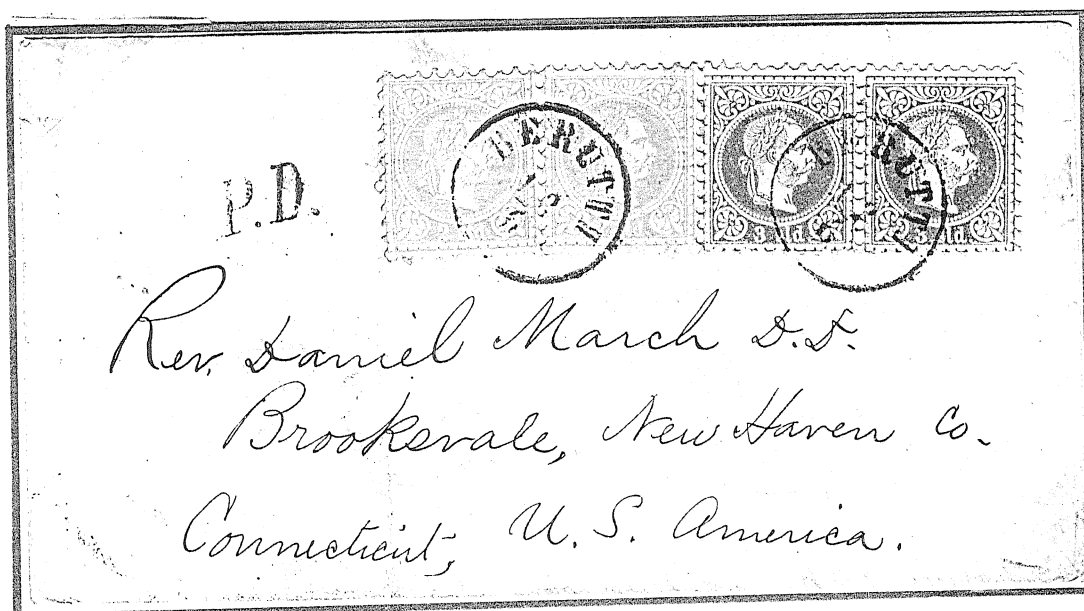 BERUT
P.D.
Rev. Daniel March D.D.
Brooksvale, New Haven Co.
Connecticut, U. S. America.